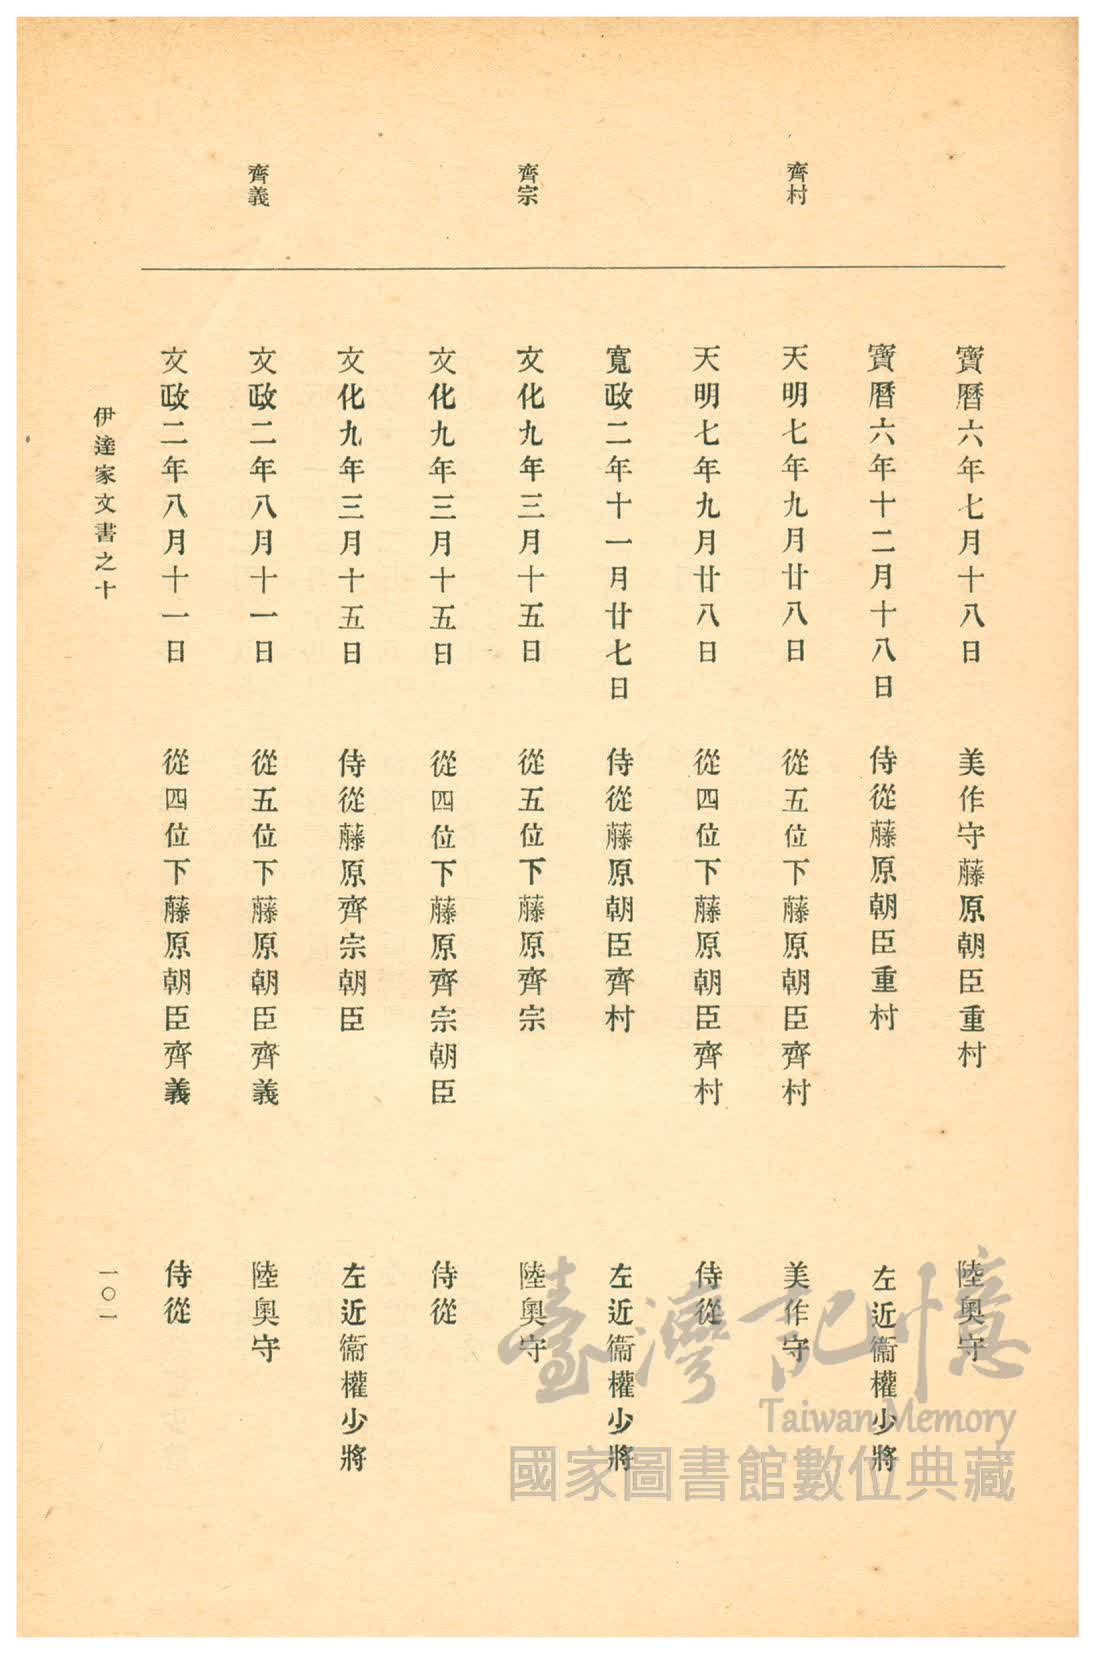 齊村
齊宗
齊義
寶曆六年七月十八日　美作守藤原朝臣重村　陸奧守
寶曆六年十二月十八日　侍從藤原朝臣重村　左近衞權少將
天明七年九月廿八日　從五位下藤原朝臣齊村　美作守
天明七年九月廿八日　從四位下藤原朝臣齊村　侍從
寬政二年十一月廿七日　侍從藤原朝臣齊村　左近衞權少將
文化九年三月十五日　從五位下藤原齊宗　陸奧守
文化九年三月十五日　從四位下藤原齊宗朝臣　侍從
文化九年三月十五日　侍從藤原齊宗朝臣　左近衞權少將
文政二年八月十一日　從五位下藤原朝臣齊義　陸奧守
文政二年八月十一日　從四位下藤原朝臣齊義　侍從
伊達家文書之十　一〇一
臺灣記憶
Taiwan Memory
國家圖書館數位典藏